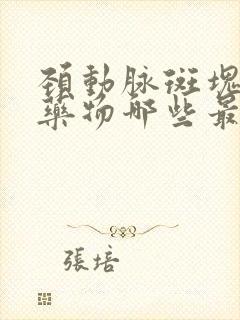 頚動脉斑塊
藥物哪些最
張培